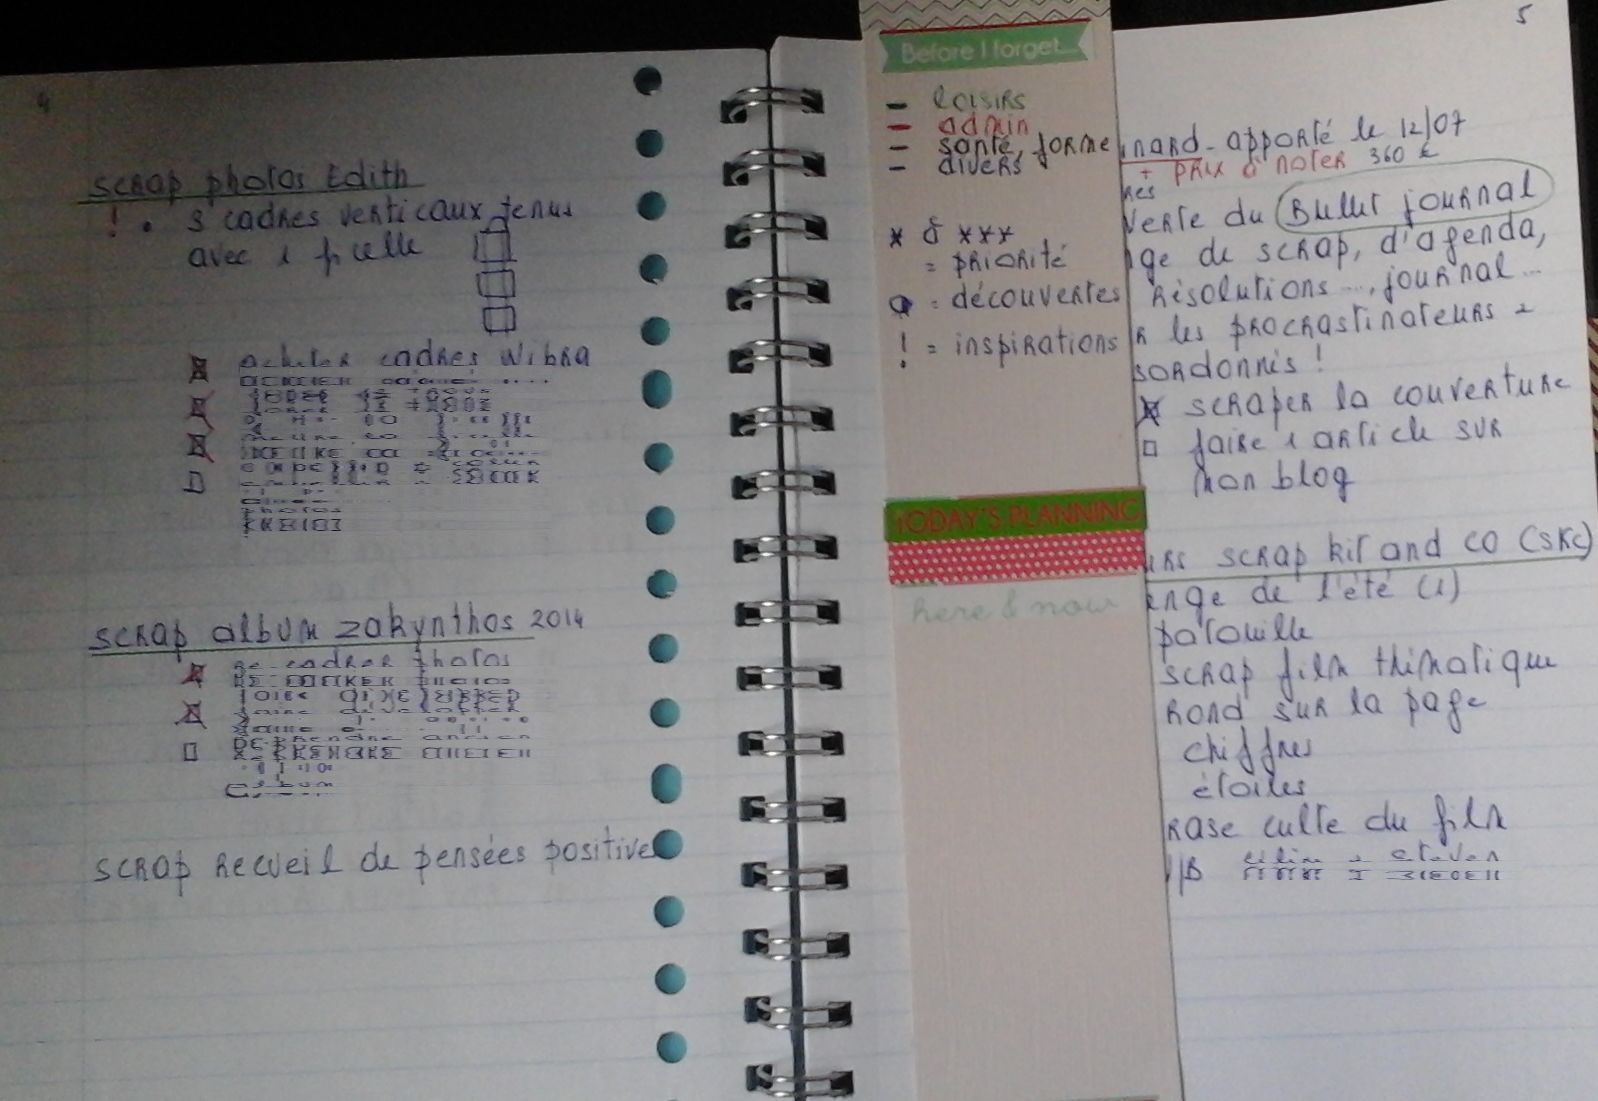 4
scrap photos Edith
! • 3 cadres verticaux tenus
avec 1 ficelle
acheter cadres Wibra
scrap album zakynthos 2014
re-cadrer photos
faire développer
reprendre ancien
album
scrap recueil de pensées positives
Before I forget...
- loisirs
- admin
- santé, forme
- divers
* à ***
= priorité
= découvertes
! = inspirations
TODAY'S PLANNING
here & now
5
nard - apporté le 12/07
+ prix à noter 360 €
res
verte du Bullet journal
ge de scrap, d'agenda,
résolutions..., journal...
r les procrastinateurs &
sordonnés !
scraper la couverture
faire 1 article sur
mon blog
urs scrap kit and co (SKC)
enge de l'été (1)
patouille
scrap film thématique
rond sur la page
chiffres
étoiles
rase culte du film